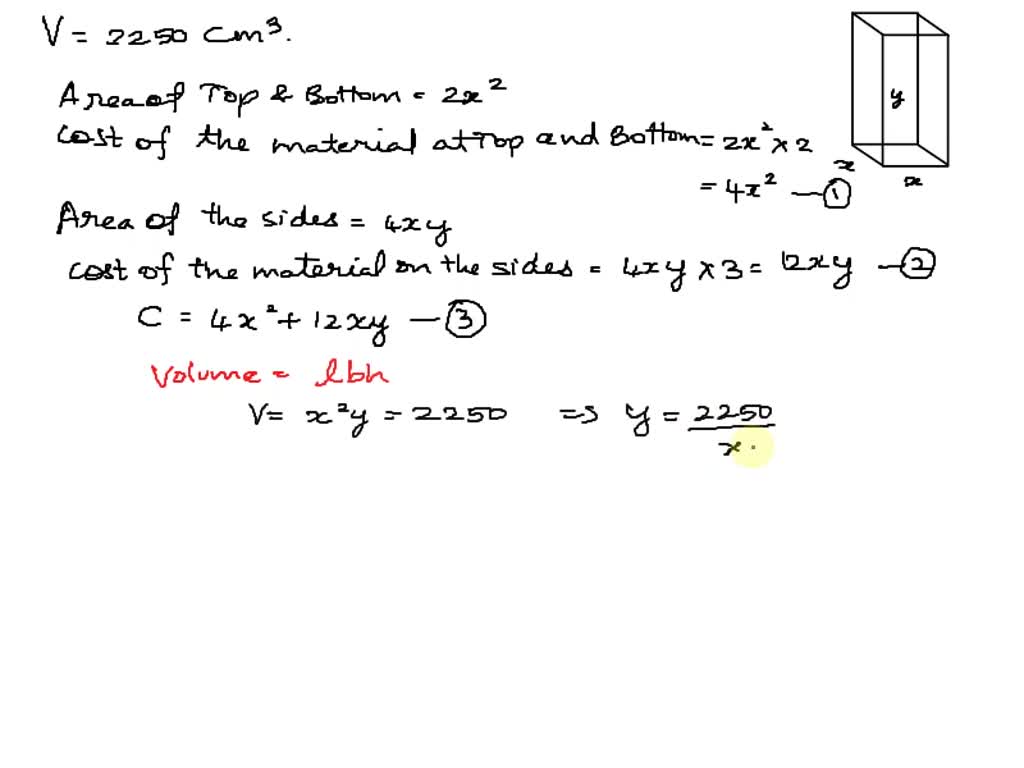 V = 2250 cm³.
Area of Top & Bottom = 2x²
Cost of the material at Top and Bottom = 2x² × 2
= 4x² — ①
Area of the sides = 4xy
cost of the material on the sides = 4xy × 3 = 12xy — ②
C = 4x² + 12xy — ③
Volume = lbh
V = x²y = 2250 => y = 2250 / x
y
x
x